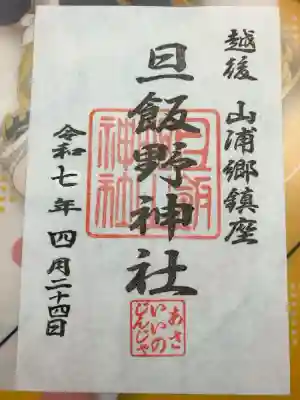 越後 山浦郷鎮座
旦飯野神社
令和七年 四月二十四日
旦飯野神社
あさ
いいの
じんじゃ